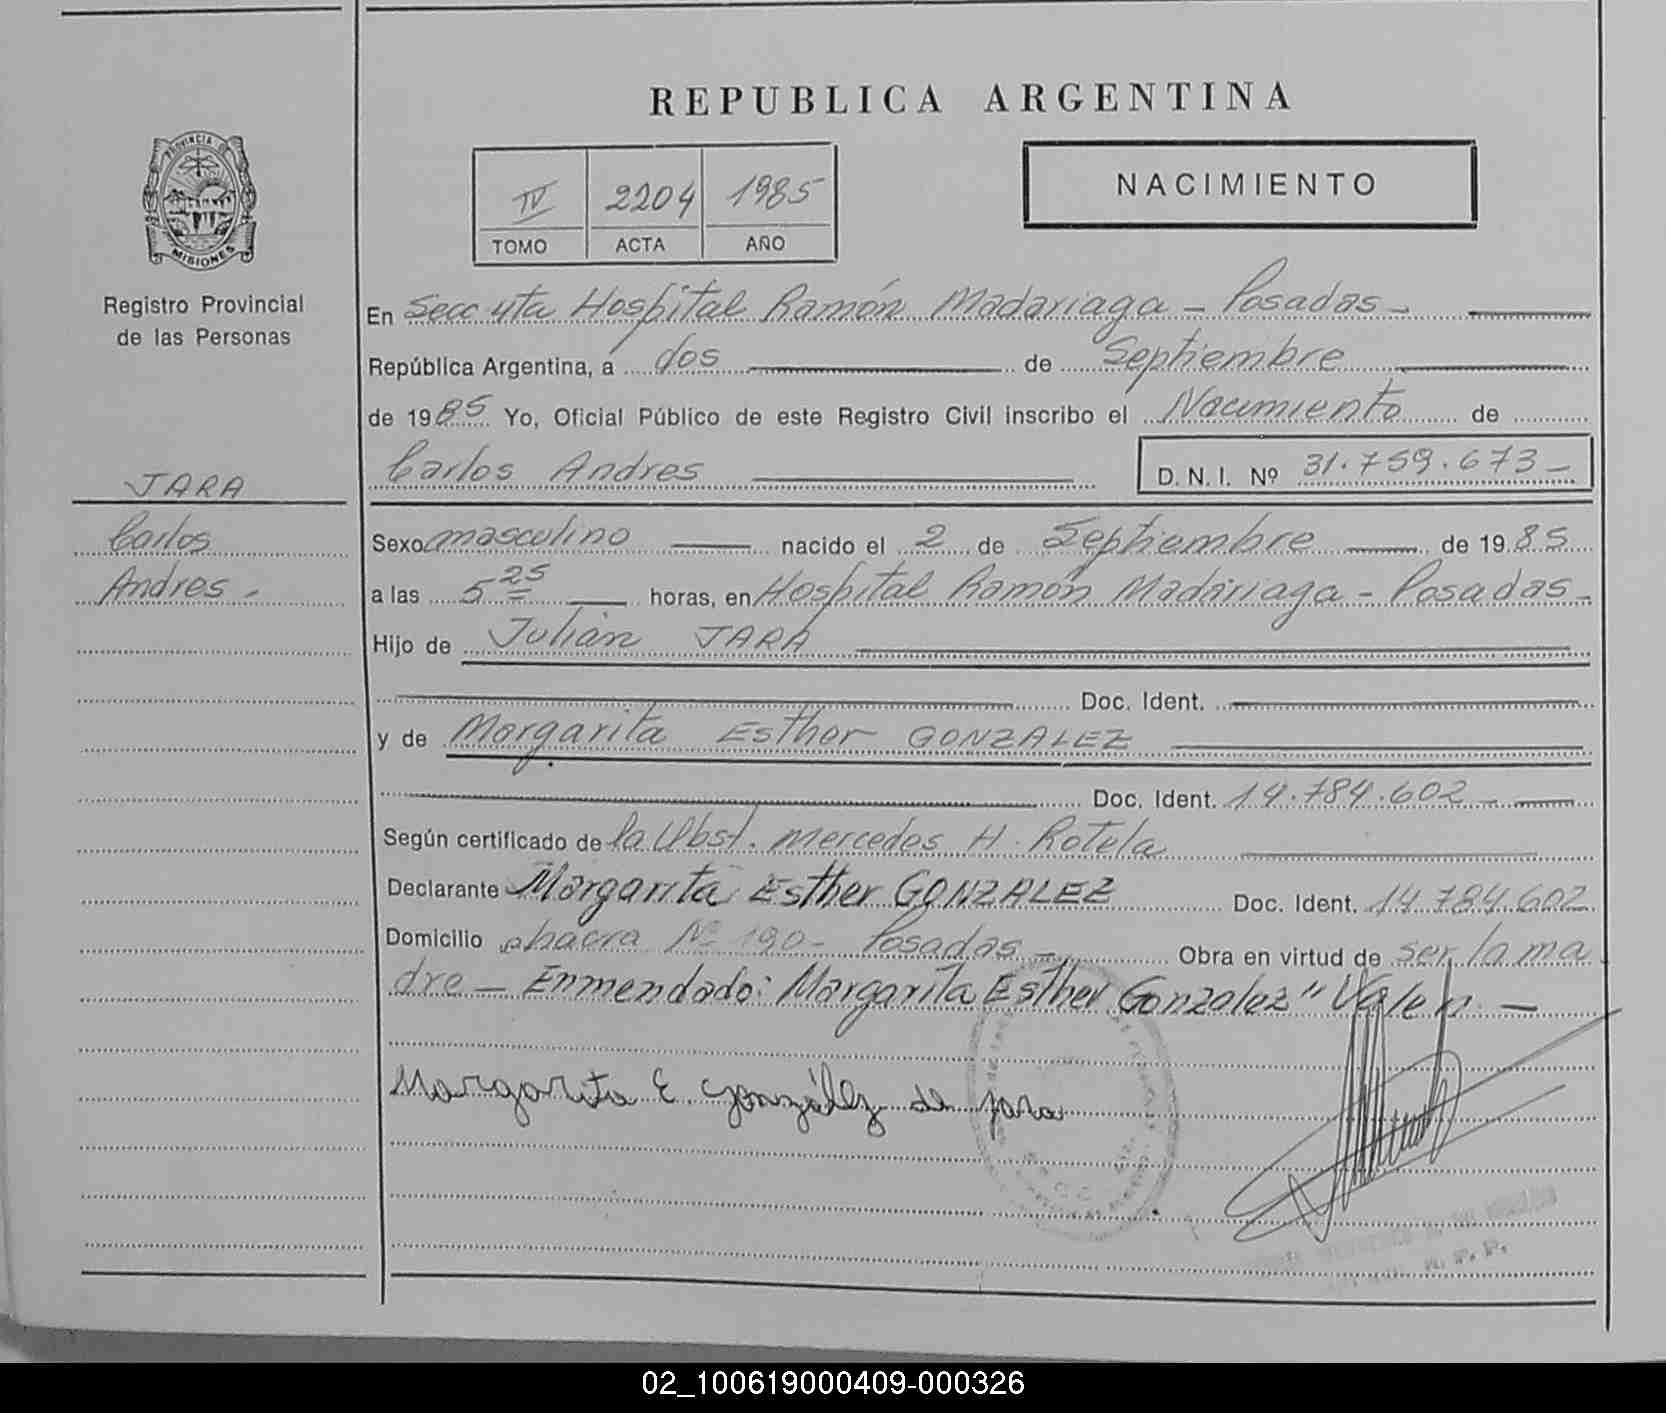 REPUBLICA ARGENTINA
PROVINCIA DE
MISIONES
Registro Provincial
de las Personas
IV 2204 1985
TOMO ACTA AÑO
NACIMIENTO
En Secc 4ta Hospital Ramón Madariaga - Posadas -
República Argentina, a dos de Septiembre
de 1985 Yo, Oficial Público de este Registro Civil inscribo el Nacimiento de
Carlos Andres
D. N. I. Nº 31.759.673 -
JARA
Carlos
Andres -
Sexo masculino nacido el 2 de Septiembre de 1985
a las 5 25 horas, en Hospital Ramón Madariaga - Posadas -
Hijo de Julián JARA
Doc. Ident.
y de Margarita Esther GONZALEZ
Doc. Ident. 14.784.602 -
Según certificado de la Obst. Mercedes H. Rotela
Declarante Margarita Esther GONZALEZ Doc. Ident. 14.784.602
Domicilio chacra Nº 190 - Posadas - Obra en virtud de ser la ma
dre - Enmendado: Margarita Esther Gonzalez" Valen. -
Margarita E. González de Jara
R. P. P.
02_100619000409-000326